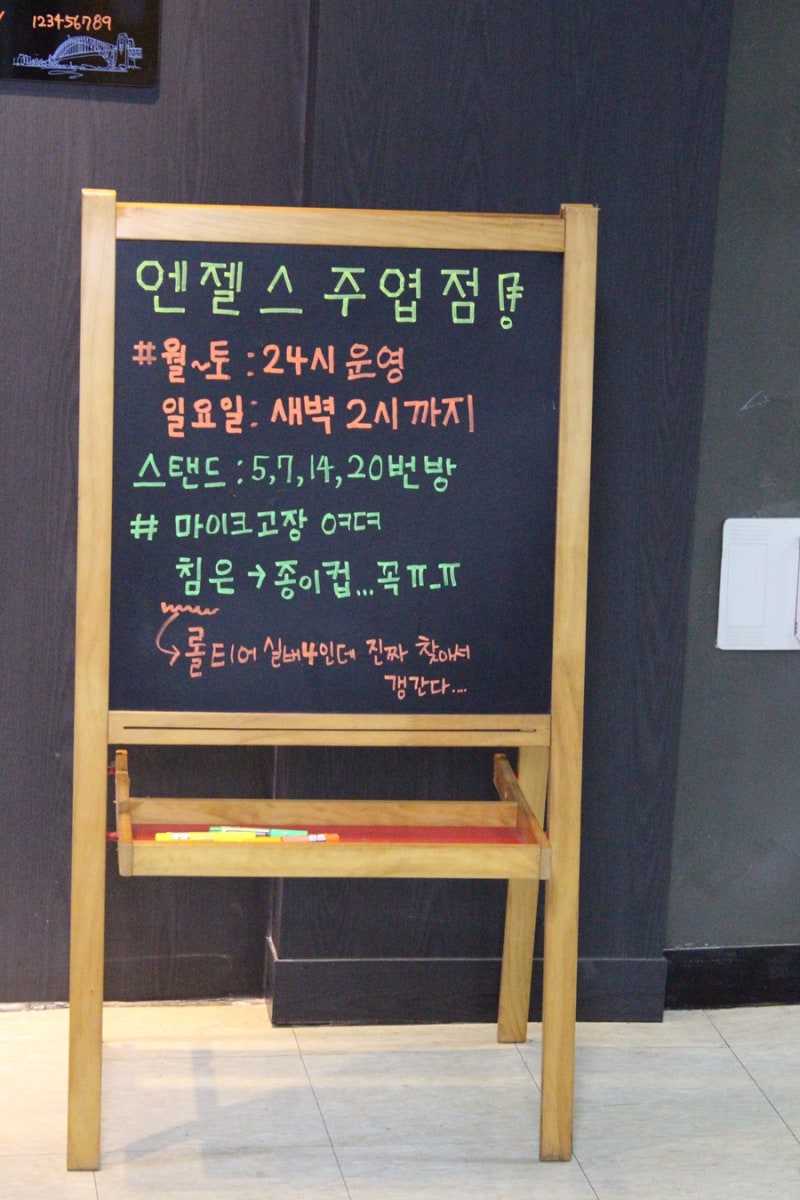 123456789
엔젤스 주엽점!
#월~토 : 24시 운영
일요일 : 새벽 2시까지
스탠드 : 5, 7, 14, 20번방
# 마이크고장 ㅇㅕㄷㅕ
침은 → 종이컵... 꼭 ㅠ_ㅠ
롤티어 실버4인데 진짜 찾아서
갱간다....